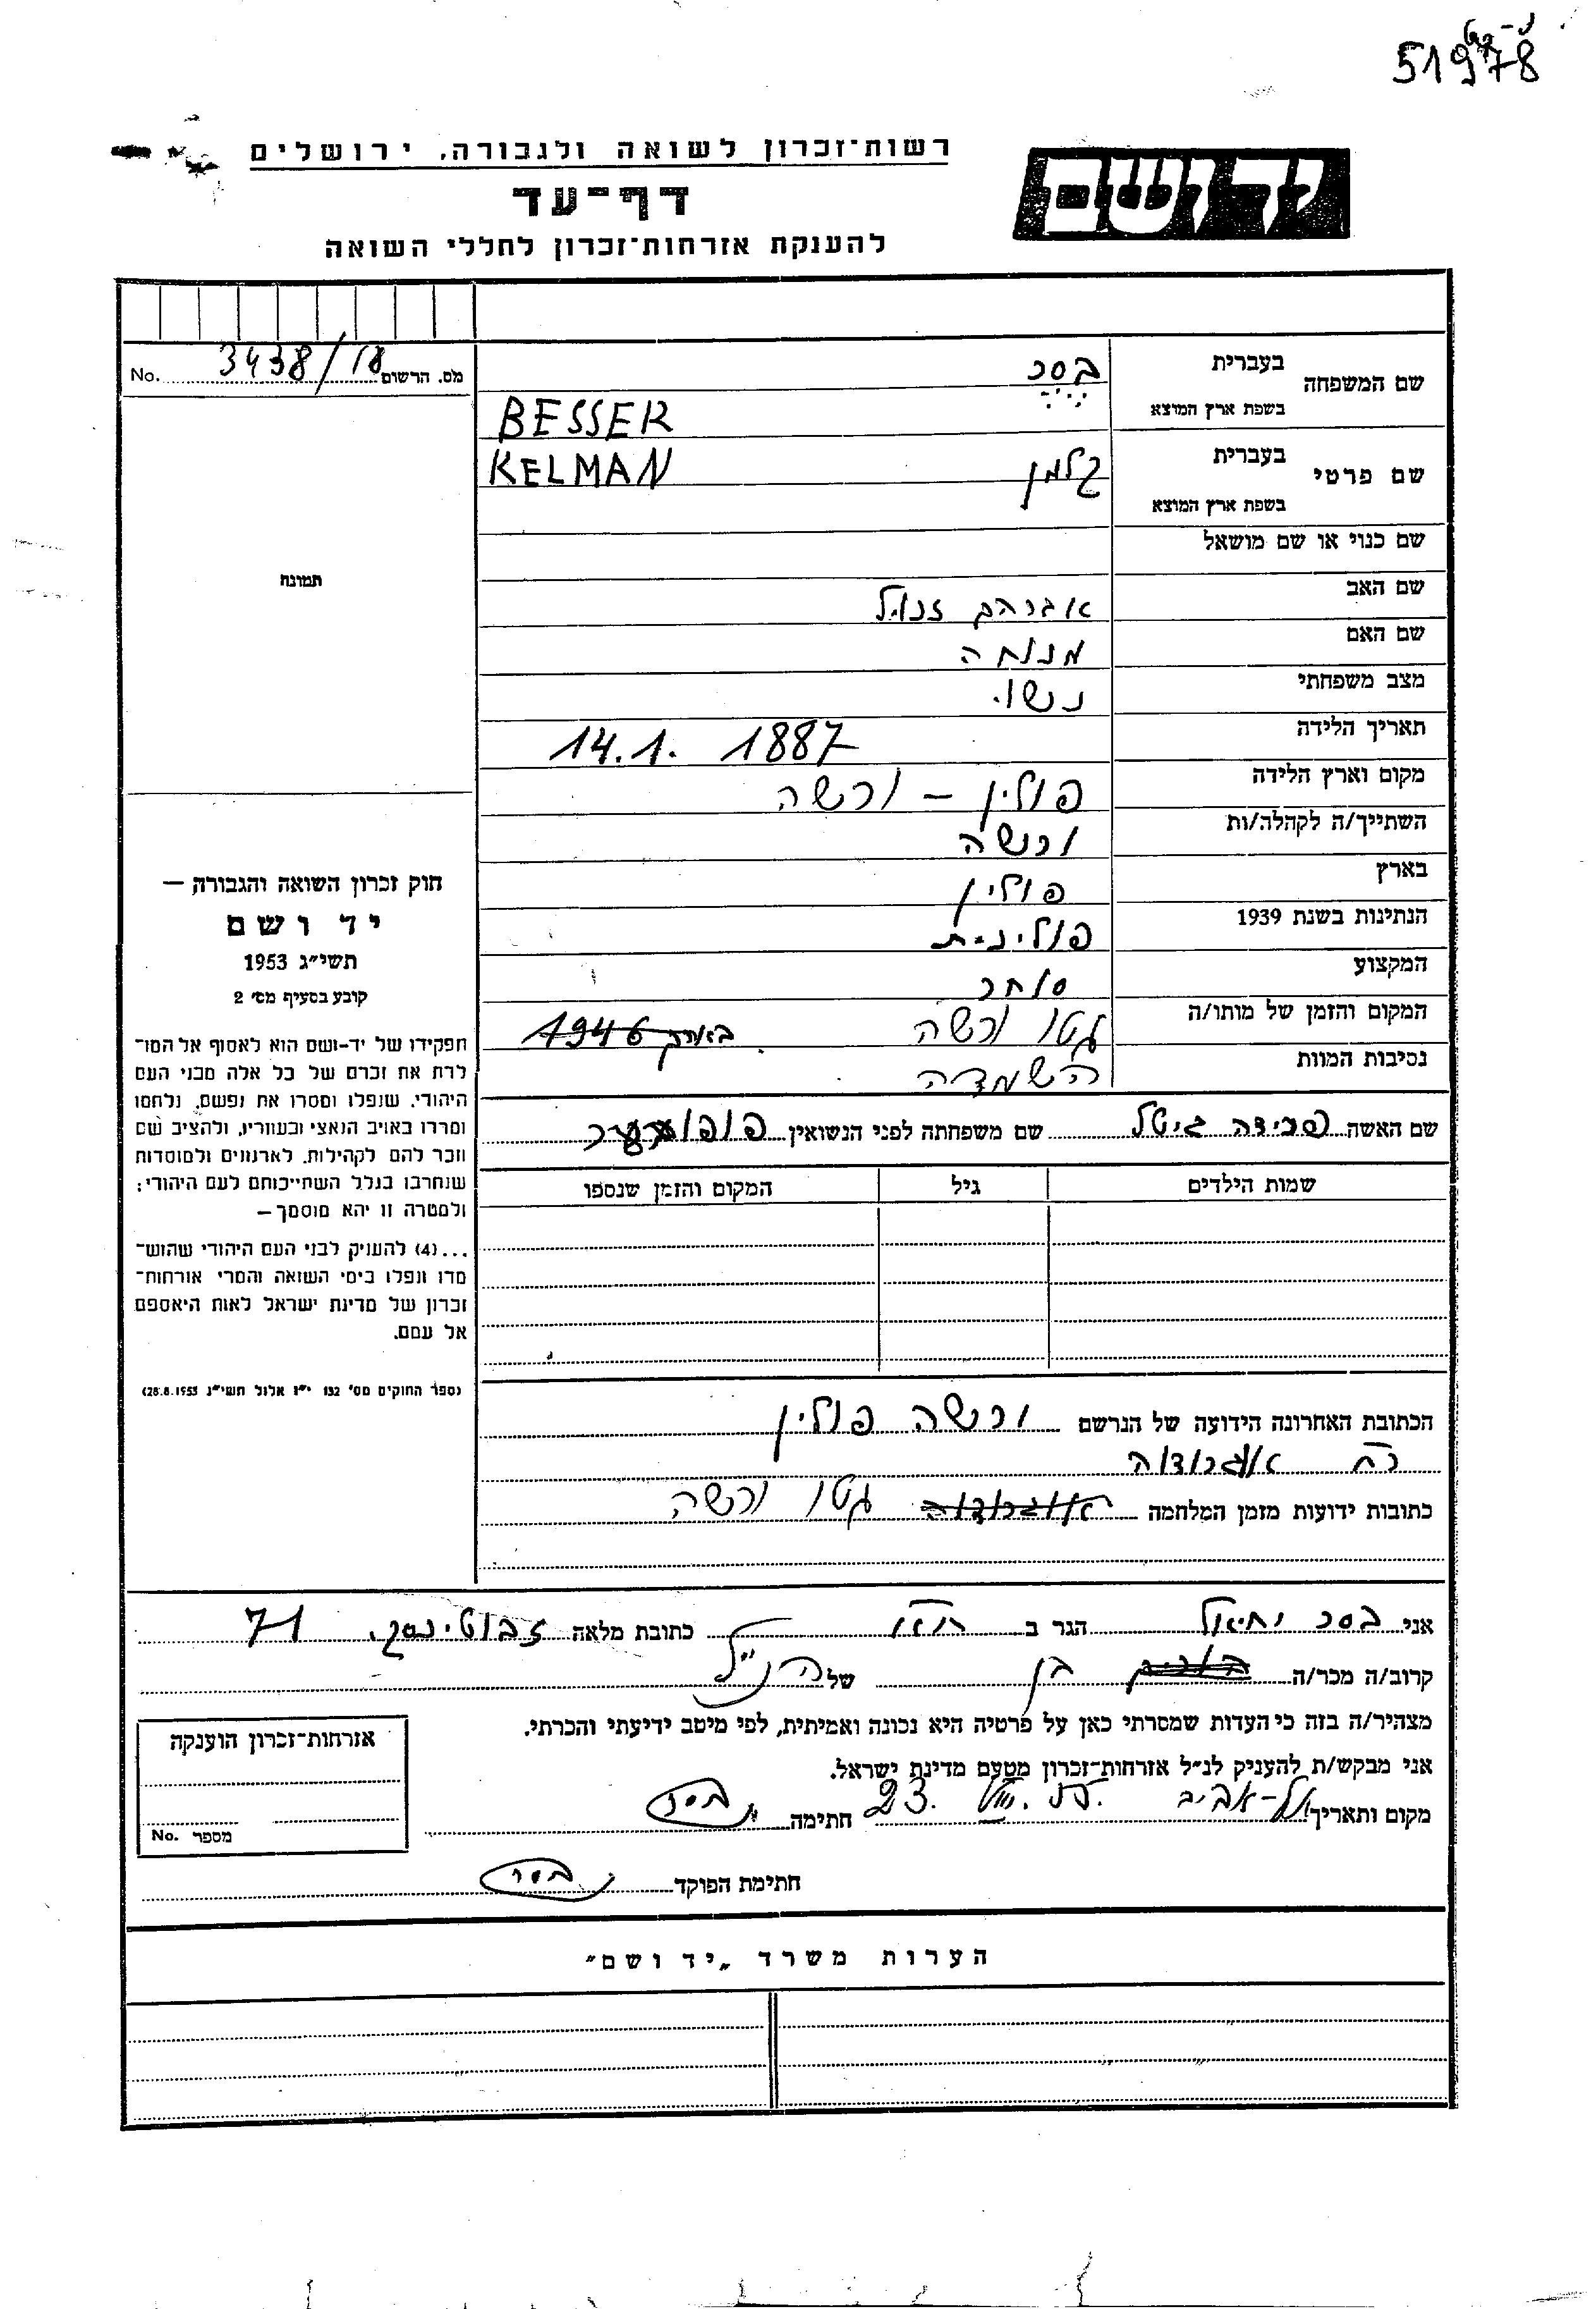 51978
רשות־זכרון לשואה ולגבורה, ירושלים
יד ושם
דף־עד
להענקת אזרחות־זכרון לחללי השואה
מס. הרשום 3438/18 No.
שם המשפחה בעברית בסר
בשפת ארץ המוצא BESSER
שם פרטי בעברית קלמן KELMAN
בשפת ארץ המוצא
תמונה
שם כנוי או שם מושאל
שם האב אברהם זנויל
שם האם מנוחה
מצב משפחתי נשוי
תאריך הלידה 14.1. 1887
מקום וארץ הלידה פולין – ורשה
השתייך/ה לקהלה/ות ורשה
בארץ פולין
הנתינות בשנת 1939 פולינית
המקצוע סוחר
המקום והזמן של מותו/ה גטו ורשה
נסיבות המוות השמדה
שם האשה פרידה גיטל שם משפחתה לפני הנשואין
שמות הילדים גיל המקום והזמן שנספו
חוק זכרון השואה והגבורה —
יד ושם
תשי״ג 1953
קובע בסעיף מס׳ 2
תפקידו של יד-ושם הוא לאסוף אל המו־
לדת את זכרם של כל אלה מבני העם
היהודי, שנפלו ומסרו את נפשם, נלחמו
ומרדו באויב הנאצי ובעוזריו, ולהציב שם
וזכר להם לקהילות, לארגונים ולמוסדות
שנחרבו בגלל השתייכותם לעם היהודי;
ולמטרה זו יהא מוסמך—
...(4) להעניק לבני העם היהודי שהוש־
מדו ונפלו בימי השואה והמרי אזרחות־
זכרון של מדינת ישראל לאות היאספם
אל עמם.
(ספר החוקים מס׳ 132 י״ז אלול תשי״ג 28.8.1953)
הכתובת האחרונה הידועה של הנרשם ורשה פולין
רח אוגרודובה
כתובות ידועות מזמן המלחמה גטו ורשה
אני בסר יחיאל הגר ב כתובת מלאה ז׳בוטינסקי 71
קרוב/ה מכר/ה בן של הנ״ל
מצהיר/ה בזה כי העדות שמסרתי כאן על פרטיה היא נכונה ואמיתית, לפי מיטב ידיעתי והכרתי.
אני מבקש/ת להעניק לנ״ל אזרחות־זכרון מטעם מדינת ישראל.
מקום ותאריך תל-אביב חתימה
אזרחות־זכרון הוענקה
מספר No.
חתימת הפוקד
הערות משרד „יד ושם״